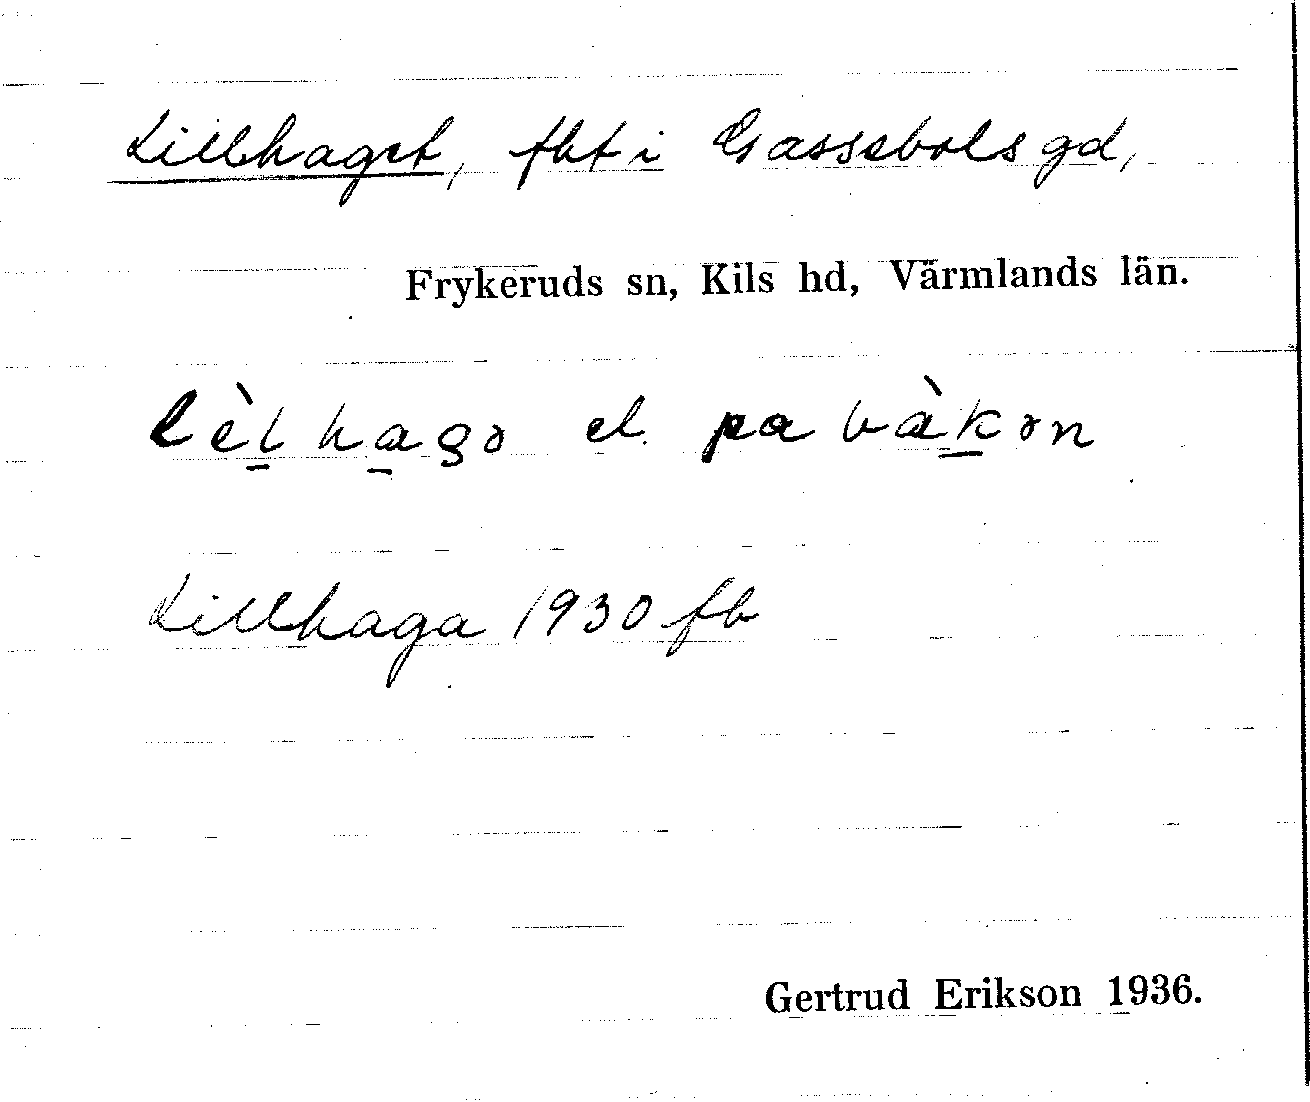 Lillhaget, fbt i Gassebols gd,
Frykeruds sn, Kils hd, Värmlands län.
lèlhagə el. pa bàkən
Lillhaga 1930 fb
Gertrud Erikson 1936.